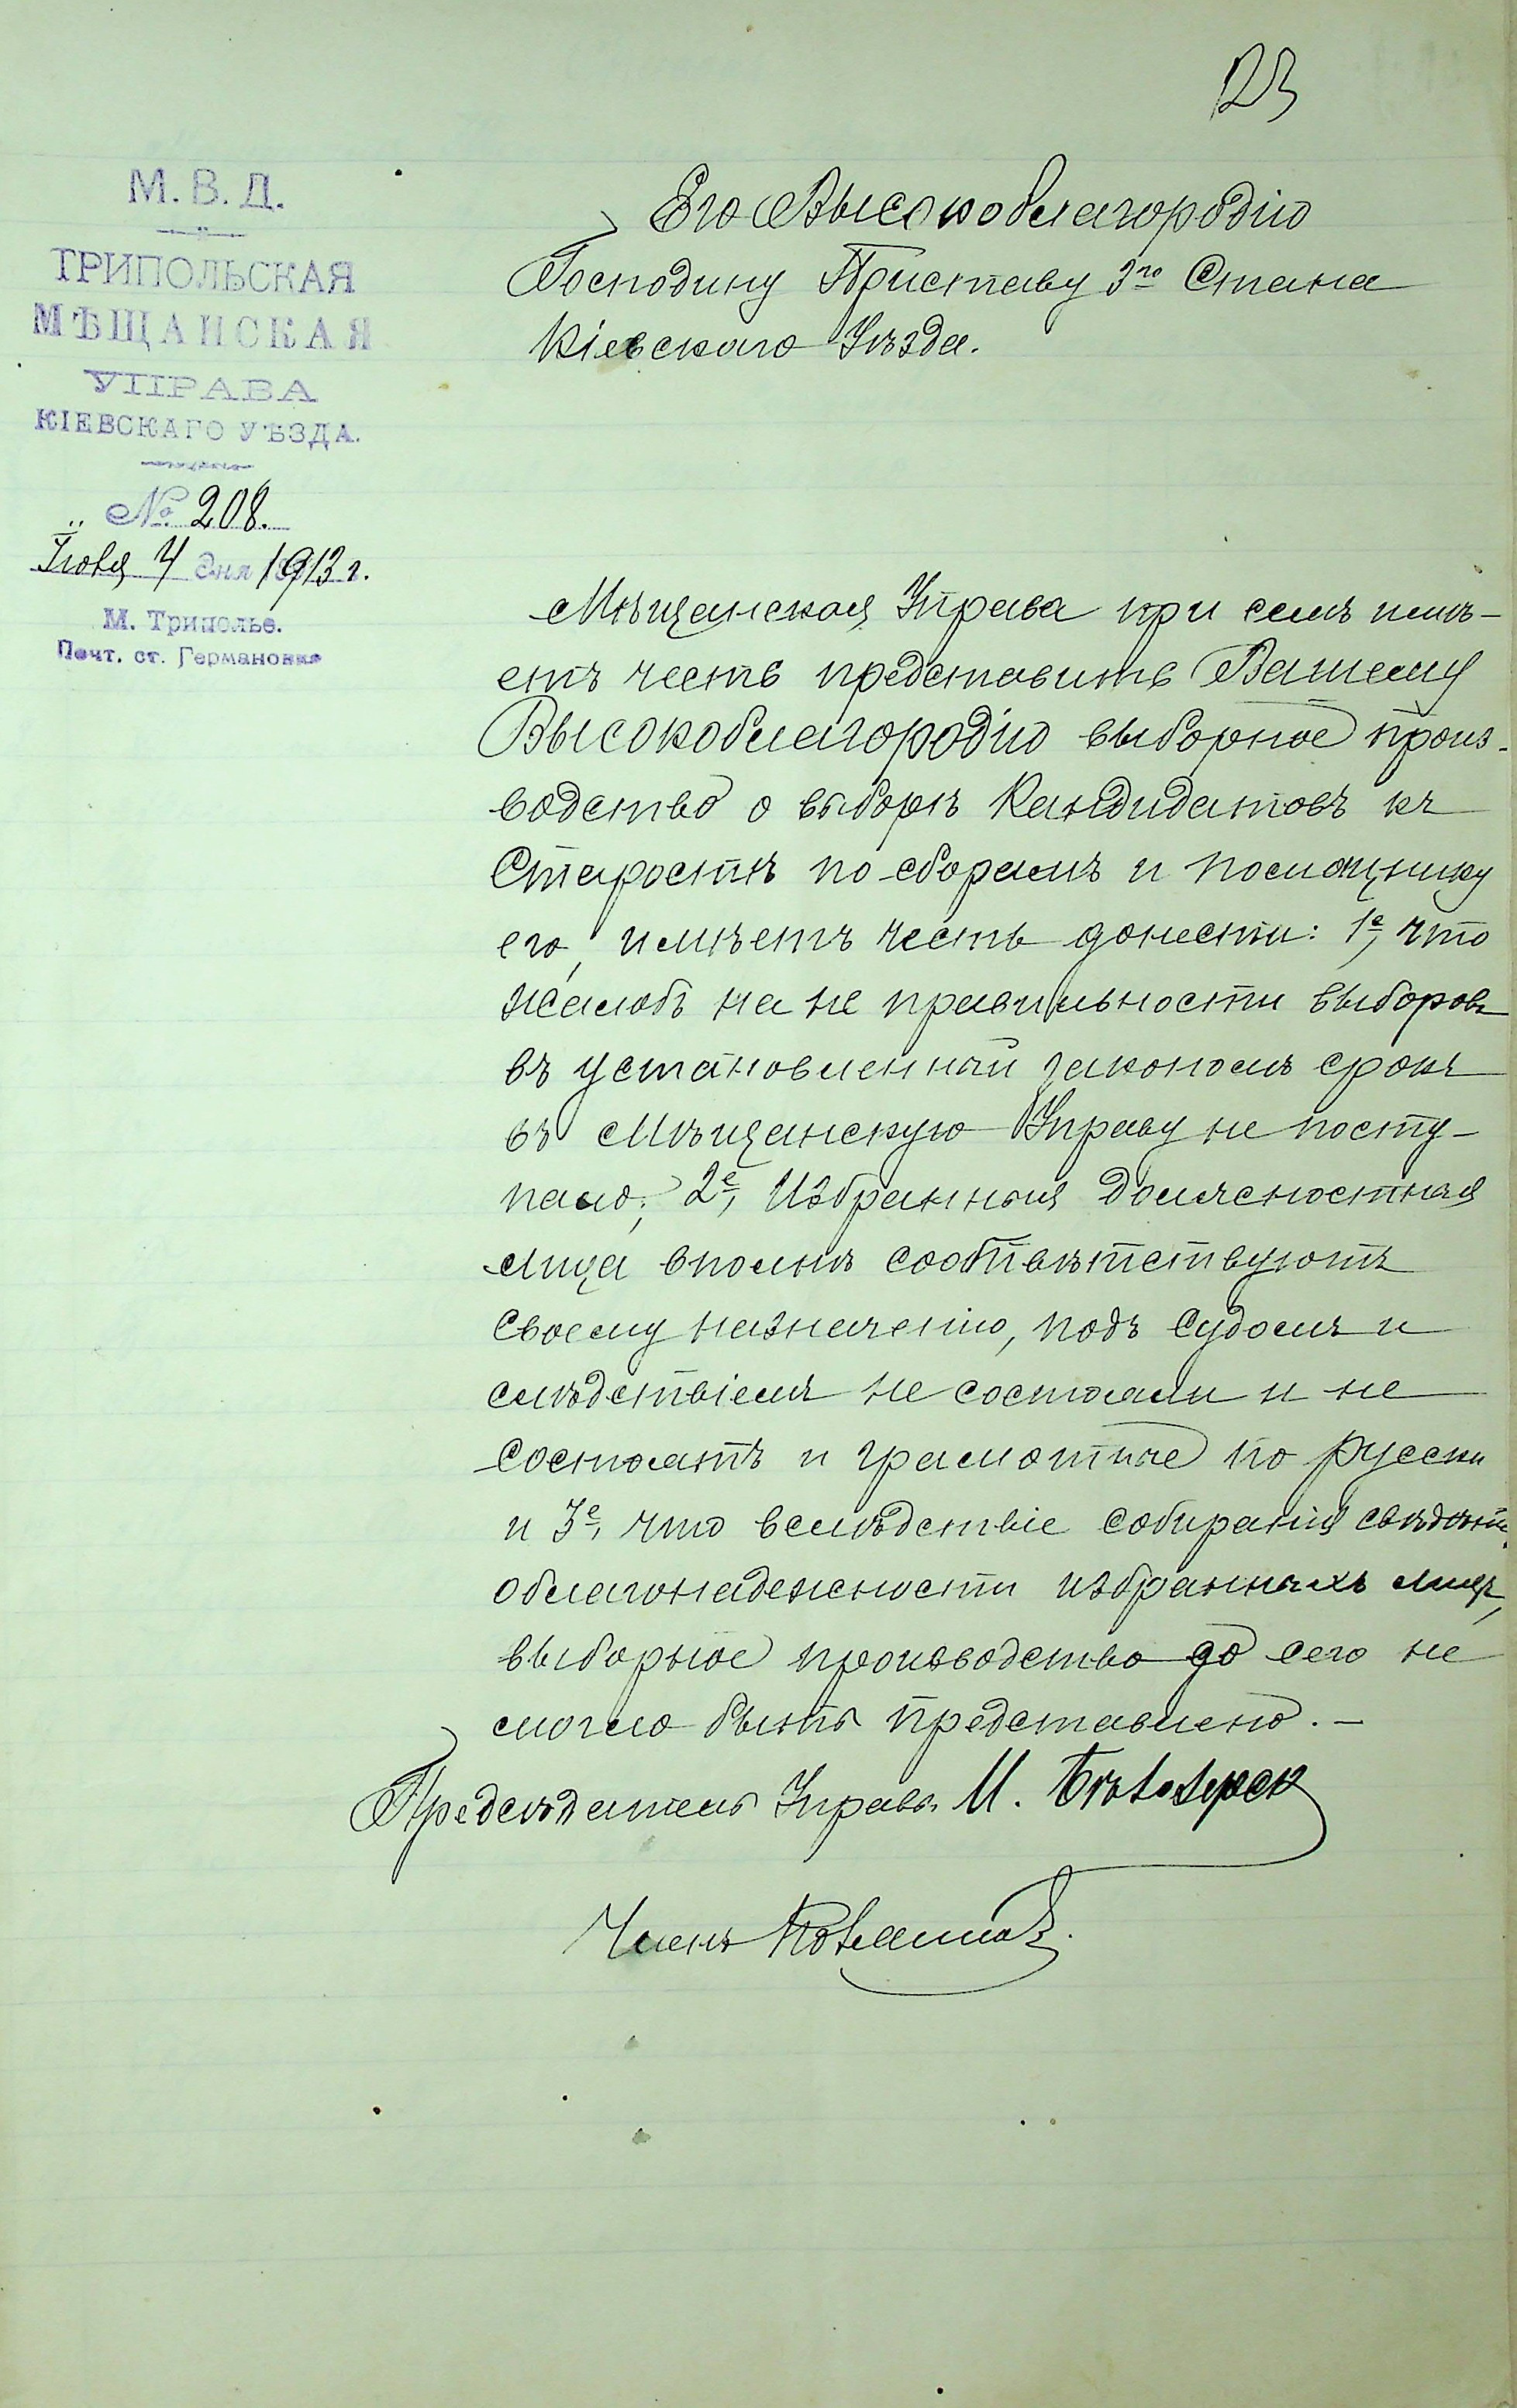 123
М. В. Д.
ТРИПОЛЬСКАЯ
МѢЩАНСКАЯ
УПРАВА
КІЕВСКАГО УѢЗДА.
№ 208.
Іюня 4 дня 1913 г.
М. Триполье.
Почт. ст. Германовка
Его Высокоблагородію
Господину Приставу 3го Стана
Кіевскаго Уѣзда.
Мѣщанская Управа при семъ имѣ-
етъ честь представить Вашему
Высокоблагородію выборное произ-
водство о выборѣ Кандидатовъ къ
Старостѣ по сборамъ и помощнику
его, имѣетъ честь донести: 1е, что
жалобъ на не правильности выборовъ
въ установленный закономъ срокъ
въ Мѣщанскую Управу не посту-
пало; 2е, Избранныя должностныя
лица вполнѣ соотвѣтствуютъ
своему назначенію, подъ судомъ и
слѣдствіемъ не состояли и не
состоятъ и грамотные по русски
и 3е, что вслѣдствіе собиранія свѣдѣній
облагонадежности избранныхъ лицъ,
выборное производство до сего не
могло быть представлено. —
Предсѣдатель Управы М.
Членъ